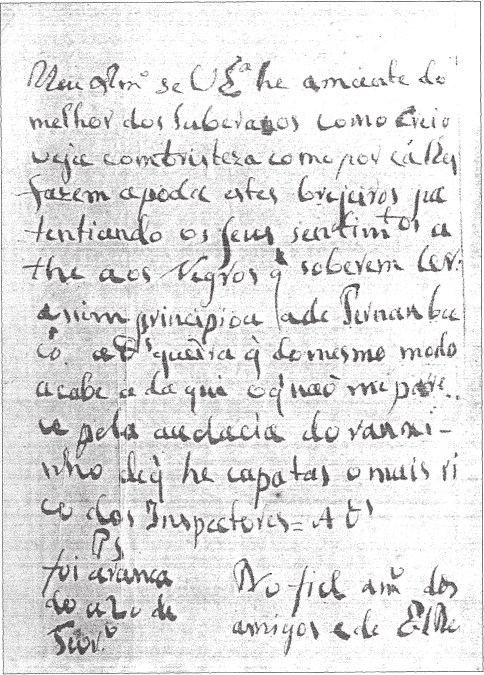 Meu Am.º se V Ex.ª he amante do
melhor dos Suberanos como creio
veja combristesa como por cá lhes
fazem a poda estes brejeiros pa
tentiando os seus sentim.tos a
the aos Negros q̃ soberem ler.
assim principiou a de Pernanbu
co. a Ds queira q̃ do mesmo modo
acabe a da qui o q̃ naõ mi pare..
ce pela audacia do ranxi-
nho de q̃ he capatas o mais ri
co dos Inspectores = A Ds
PS
foi aranca
do a 20 de
Fevr.º
Do fiel am.º dos
amigos e de ElRe